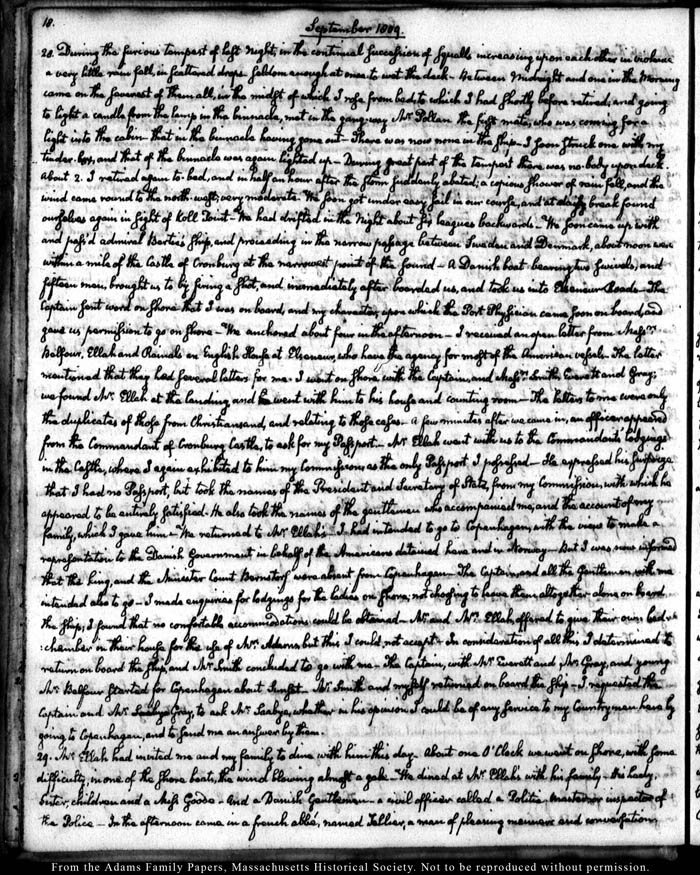 18.
September 1809.
28. During the furious tempest of last Night, in the continual succession of Squalls increasing upon each other in violence
a very little rain fell, in scattered drops, seldom enough at once to wet the deck - Between Midnight and one in the Morning
came on the severest of them all, in the midst of which I rose from bed, to which I had shortly before retired, and going
to light a candle from the lamp in the binnacle, met in the gang-way Mr. the first mate, who was coming for a
light into the cabin that in the binnacle having gone out - There was now none in the Ship - I soon struck one with my
tinder-box, and that of the binnacle was again lighted up - During great part of the tempest there was no body upon deck.
About 2. I retired again to bed, and in half an hour after the storm suddenly abated; a copious shower of rain fell, and the
wind came round to the north-west; very moderate. We soon got under easy sail in our course, and at daily break found
ourselves again in sight of Koll Point - We had drifted in the Night about six leagues backwards - We soon came up with
and pass'd admiral Bertie's ship, and proceeding in the narrow passage between Sweden and Denmark, about noon were
within a mile of the Castle of Cronburg at the narrowest point of the Sound - A Danish boat bearing two swivels, and
fifteen men, brought us to by firing a shot, and immediately after boarded us, and took us into Elseneur Roads - The
Captain sent word on shore that I was on board, and my character, upon which the Port Physician came soon on board and
gave us permission to go on shore - We anchored about four in the afternoon - I received an open letter from Messrs.
Balfour, Ellah and Rainals an English House at Elseneur, who have the agency for most of the American vessels. The letter
mentioned that they had several letters for me. I went on shore with the Captain, and Messrs. Smith, Everett and Gray;
we found Mr. Ellah at the landing, and he went with him to his house and counting room - The letters to me were only
the duplicates of those from Christiansand, and relating to those cases. A few minutes after we came in, an officer appeared
from the Commandant of Cronburg Castle, to ask for my Passport - Mr. Ellah went with us to the Commandant's lodgings
in the Castle, where I again exhibited to him my Commission as the only Passport I possessed - He expressed his surprize
that I had no Passport, but took the names of the President and Secretary of State, from my Commission, with which he
appeared to be entirely satisfied. He also took the names of the gentlemen who accompanied me, and the account of my
family, which I gave him - We returned to Mr. Ellah's - I had intended to go to Copenhagen, with the view to make a
representation to the Danish Government in behalf of the Americans detained here and in Norway - But I was now informed
that the king, and the Minister Count Bernstorf were absent from Copenhagen - The Captain, and all the Gentlemen, with me
intended also to go - I made enquiries for lodgings for the ladies on shore, not choosing to leave them altogether alone on board
the ship; I found that no comfortable accommodations could be obtained - Mr. and Mrs. Ellah offered to give their own bed-
chamber in their house for the use of Mrs. Adams but this I could not accept - In consideration of all this I determined to
return on board the ship, and Mr. Smith concluded to go with me - The Captain, with Mr. Everett and Mr. Gray, and young
Mr. Balfour started for Copenhagen about Sunset - Mr. Smith and myself returned on board the ship - I requested the
Captain and Mr. Gray, to ask Mr. Saabye, whether in his opinion I could be of any service to my Countrymen here by
going to Copenhagen, and to send me an answer by them.
29. Mr. Ellah had invited me and my family to dine with him this day. About one O'Clock we went on shore, with some
difficulty, in one of the shore boats, the wind blowing almost a gale - We dined at Mr. Ellah's with his family - His lady,
Sister, children and a Miss Goode - And a Danish Gentleman - a civil officer called a Politie-Master or inspector of
the Police - In the afternoon came in a french abbé, named Tellier, a man of pleasing manners and conversation,
From the Adams Family Papers, Massachusetts Historical Society. Not to be reproduced without permission.